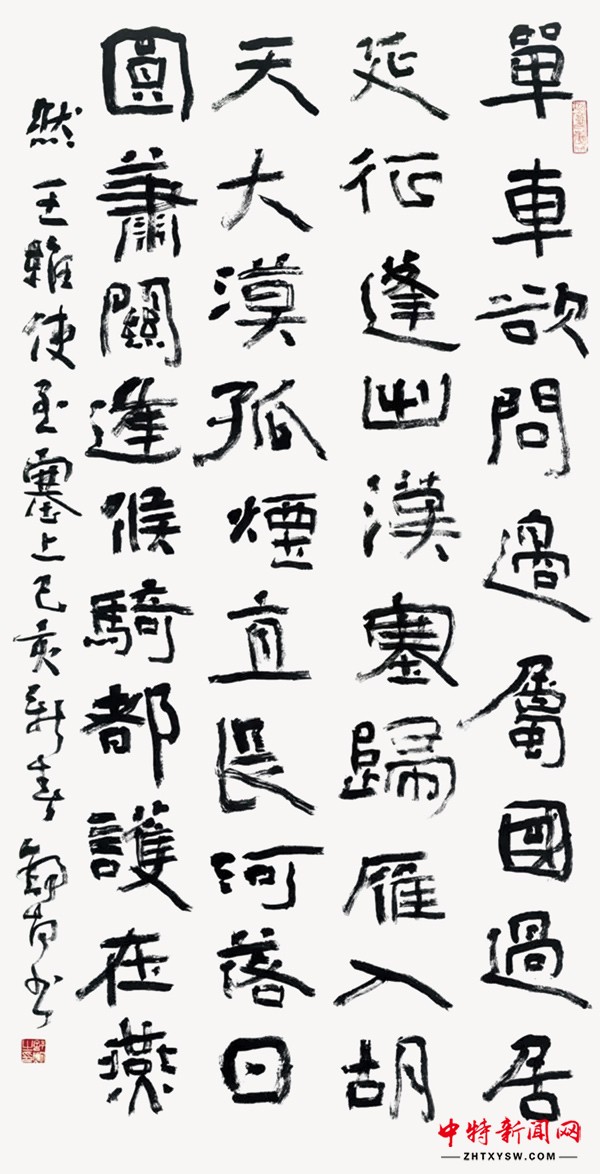 單車欲問邊屬國過居
延征蓬出漢塞歸雁入胡
天大漠孤煙直長河落日
圓蕭關逢候騎都護在燕
然王維使至塞上己亥新春書
中特新闻网
ZHTXYSW.COM